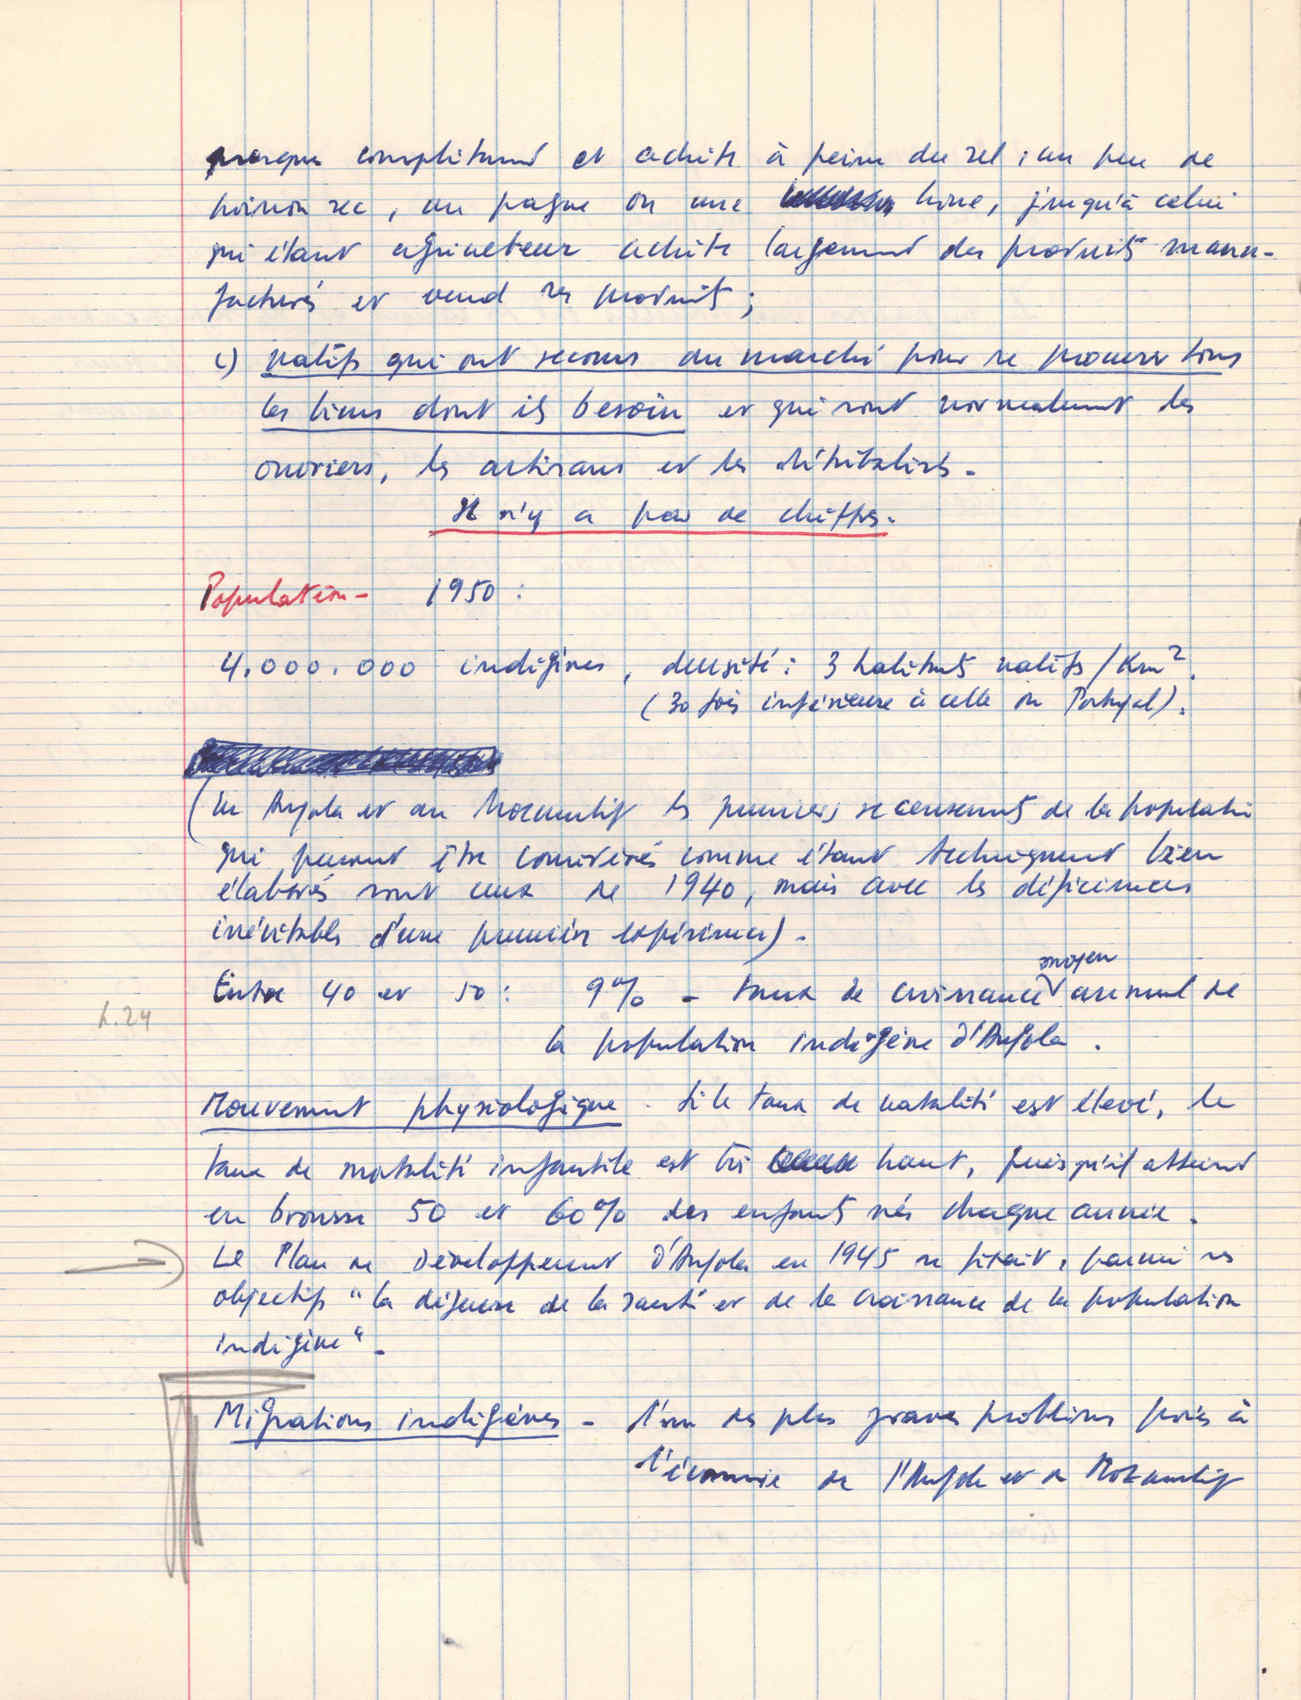 presque complètement et achète à peine du sel, un peu de
poisson sec, un pagne ou une houe, jusqu'à celui
qui étant agriculteur achète largement des produits manu-
facturés et vend ses produits ;
c) natifs qui ont recours au marché pour se procurer tous
les biens dont ils besoin et qui sont normalement les
ouvriers, les artisans et les détribalisés -
Il n'y a pas de chiffres.
Population - 1950 :
4.000.000 indigènes, densité : 3 habitants natifs / Km².
(30 fois inférieure à celle du Portugal).
(En Angola et au Mozambique les premiers recensements de la population
qui peuvent être considérés comme étant techniquement bien
élaborés sont ceux de 1940, mais avec les déficiences
inévitables d'une première expérience) -
moyen
Entre 40 et 50 : 9% - taux de croissance annuel de
la population indigène d'Angola .
h.24
Mouvement physiologique - Si le taux de natalité est élevé, le
taux de mortalité infantile est très haut, puisqu'il atteint
en brousse 50 et 60% des enfants nés chaque année .
Le Plan de Développement d'Angola en 1945 se fixait, parmi ses
objectifs "la défense de la santé et de la croissance de la population
indigène" -
Migrations indigènes - l'un des plus graves problèmes posés à
l'économie de l'Angola et du Mozambique